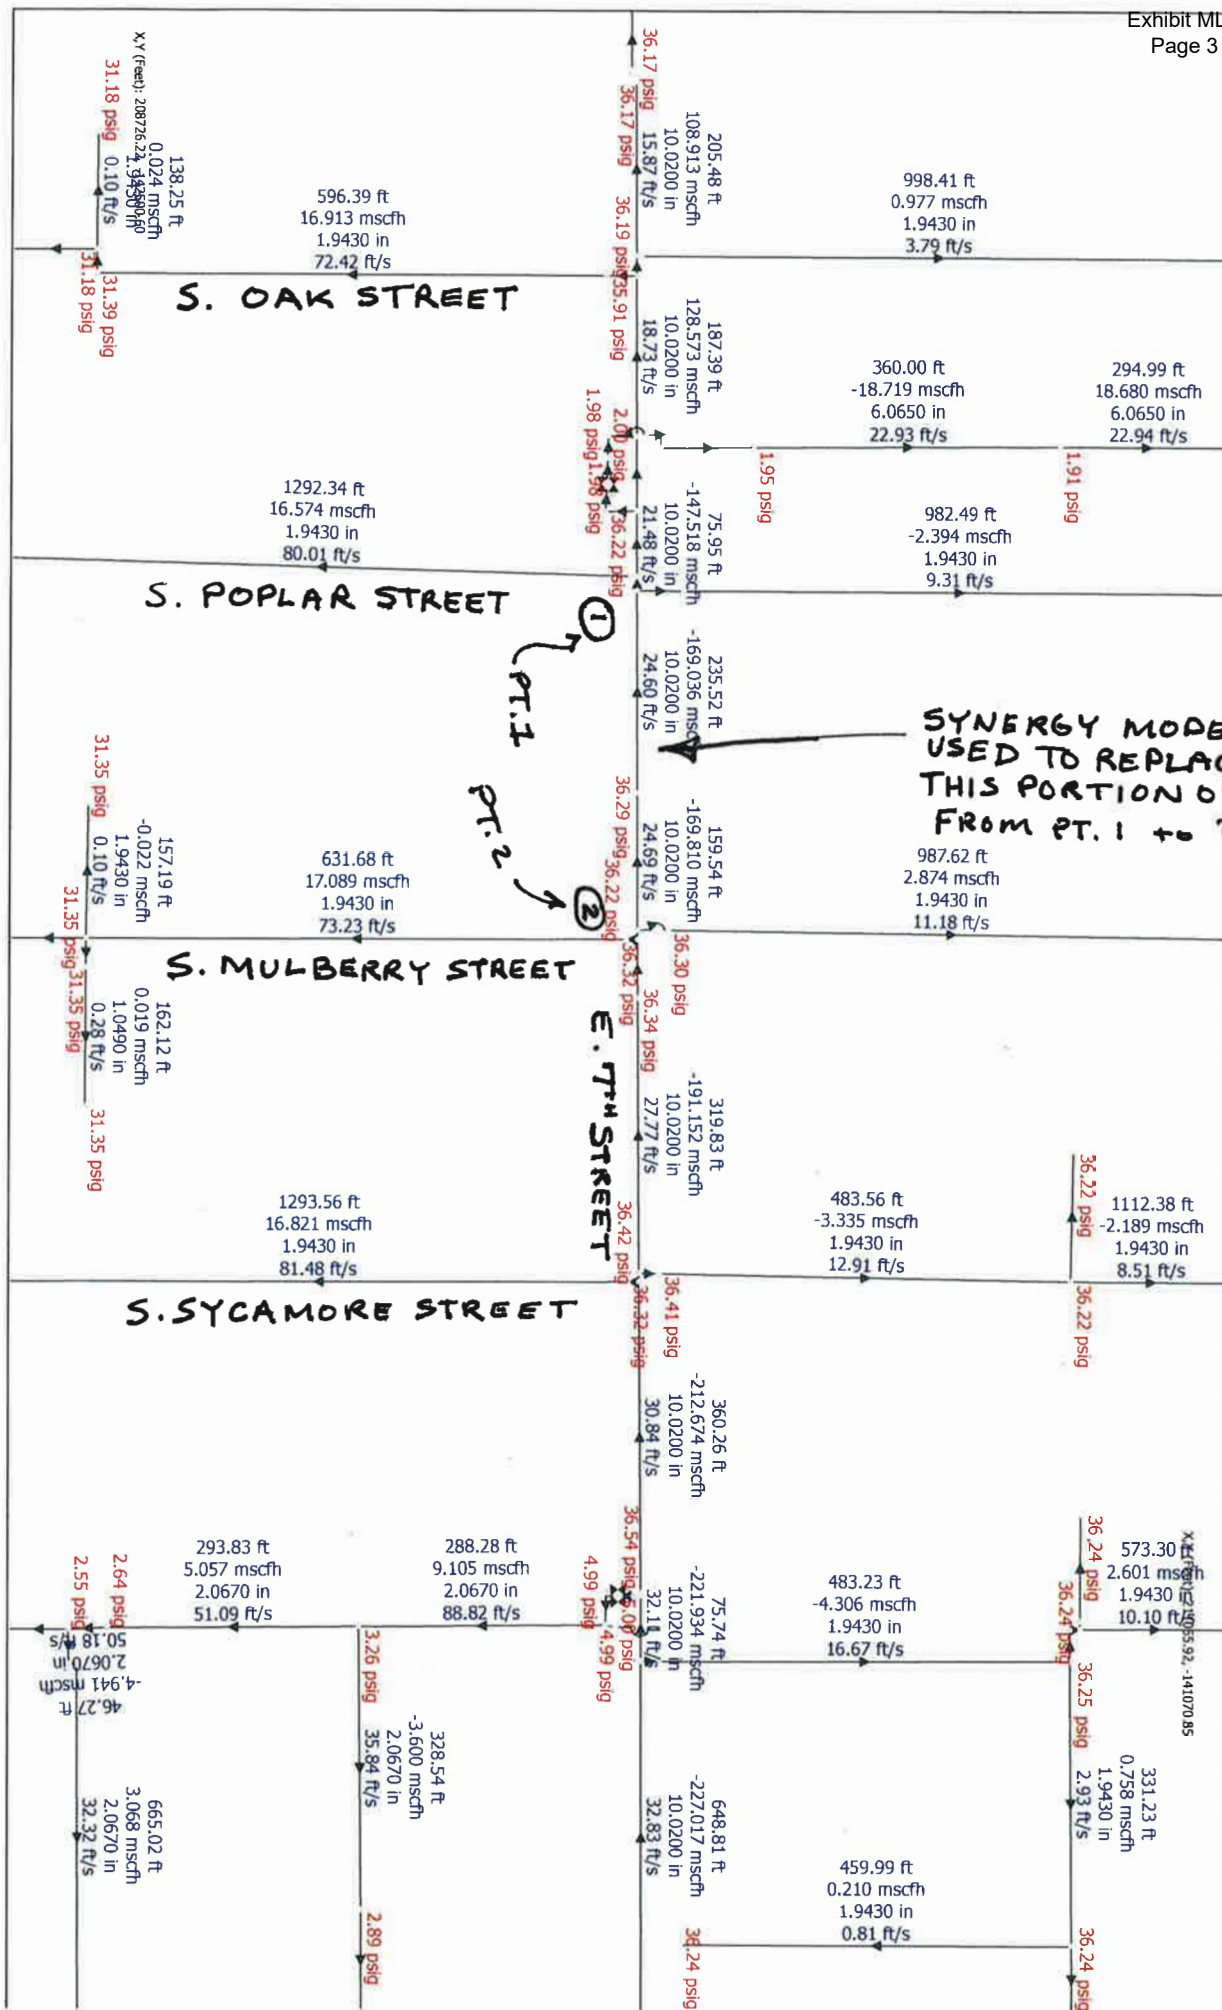 Exhibit ML
Page 3
36.17 psig
36.17 psig
205.48 ft
108.913 mscfh
10.0200 in
15.87 ft/s
X,Y (Feet): 208726.22,
31.18 psig
138.25 ft
0.024 mscfh
0.10 ft/s
596.39 ft
16.913 mscfh
1.9430 in
72.42 ft/s
998.41 ft
0.977 mscfh
1.9430 in
3.79 ft/s
36.19 psig
35.91 psig
31.18 psig
31.39 psig
S. OAK STREET
187.39 ft
128.573 mscfh
10.0200 in
18.73 ft/s
360.00 ft
-18.719 mscfh
6.0650 in
22.93 ft/s
294.99 ft
18.680 mscfh
6.0650 in
22.94 ft/s
2.00 psig
1.98 psig
1.98 psig
1.95 psig
1.91 psig
1292.34 ft
16.574 mscfh
1.9430 in
80.01 ft/s
75.95 ft
-147.518 mscfh
10.0200 in
21.48 ft/s
36.22 psig
982.49 ft
-2.394 mscfh
1.9430 in
9.31 ft/s
S. POPLAR STREET
1
PT.1
235.52 ft
-169.036 msc
10.0200 in
24.60 ft/s
SYNERGY MODE
USED TO REPLAC
THIS PORTION O
FROM PT. 1 to
PT.2
2
31.35 psig
157.19 ft
-0.022 mscfh
1.9430 in
0.10 ft/s
631.68 ft
17.089 mscfh
1.9430 in
73.23 ft/s
36.29 psig
36.22 psig
159.54 ft
-169.810 mscfh
10.0200 in
24.69 ft/s
987.62 ft
2.874 mscfh
1.9430 in
11.18 ft/s
31.35 psig
31.35 psig
S. MULBERRY STREET
36.32 psig
36.30 psig
36.34 psig
162.12 ft
0.019 mscfh
1.0490 in
0.28 ft/s
31.35 psig
E. 7TH STREET
319.83 ft
-191.152 mscfh
10.0200 in
27.77 ft/s
36.42 psig
1293.56 ft
16.821 mscfh
1.9430 in
81.48 ft/s
483.56 ft
-3.335 mscfh
1.9430 in
12.91 ft/s
36.22 psig
1112.38 ft
-2.189 mscfh
1.9430 in
8.51 ft/s
S. SYCAMORE STREET
36.32 psig
36.41 psig
36.22 psig
360.26 ft
-212.674 mscfh
10.0200 in
30.84 ft/s
36.54 psig
4.99 psig
4.99 psig
293.83 ft
5.057 mscfh
2.0670 in
51.09 ft/s
288.28 ft
9.105 mscfh
2.0670 in
88.82 ft/s
75.74 ft
-221.934 mscfh
10.0200 in
32.11 ft/s
483.23 ft
-4.306 mscfh
1.9430 in
16.67 ft/s
36.24 psig
36.24 psig
573.30
2.601 mscfh
1.9430 in
10.10 ft/s
55.92, -141070.85
2.64 psig
2.55 psig
46.27 ft
-4.941 mscfh
2.0670 in
50.18 ft/s
3.26 psig
328.54 ft
-3.600 mscfh
2.0670 in
35.84 ft/s
36.25 psig
331.23 ft
0.758 mscfh
1.9430 in
2.93 ft/s
665.02 ft
3.068 mscfh
2.0670 in
32.32 ft/s
648.81 ft
-227.017 mscfh
10.0200 in
32.83 ft/s
459.99 ft
0.210 mscfh
1.9430 in
0.81 ft/s
2.89 psig
36.24 psig
36.24 psig